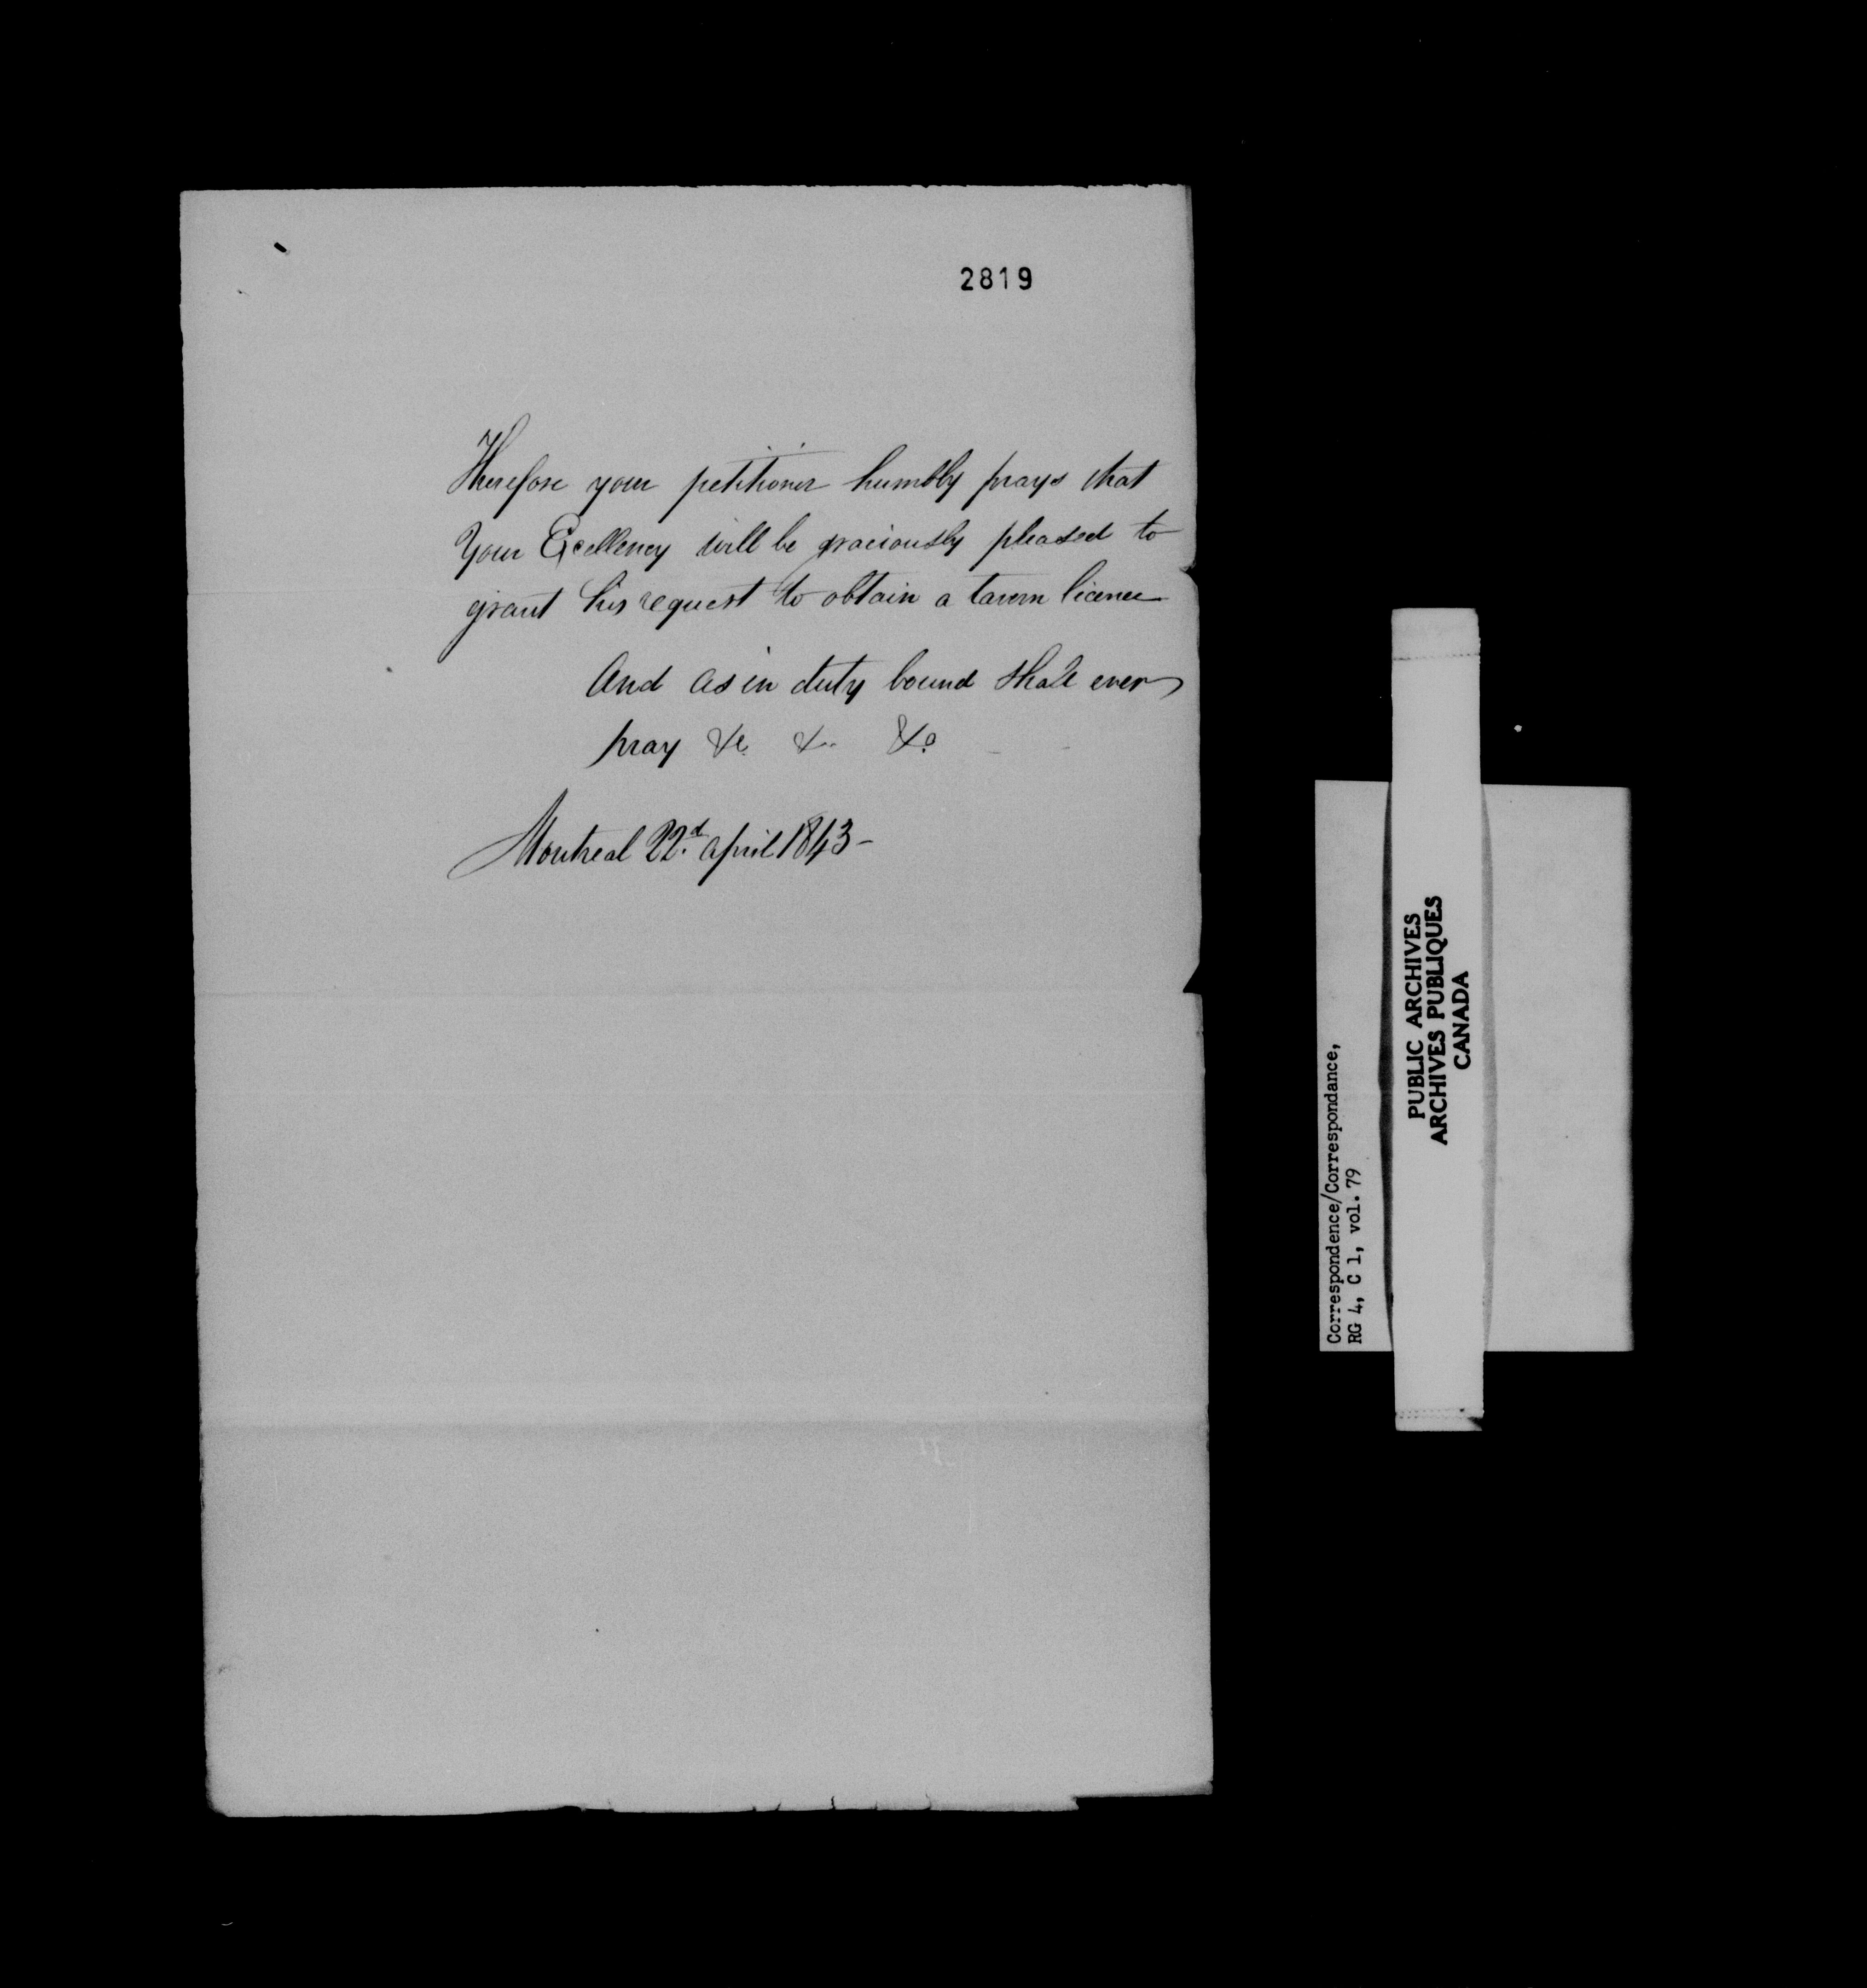 2819
Therefore your petitioner humbly prays that
Your Excellency will be graciously pleased to
grant his request to obtain a tavern licence
And as in duty bound shall ever
pray &c &c &c
Montreal 22.d april 1843 -
Correspondence/Correspondance,
RG 4, C 1, vol. 79
PUBLIC ARCHIVES
ARCHIVES PUBLIQUES
CANADA